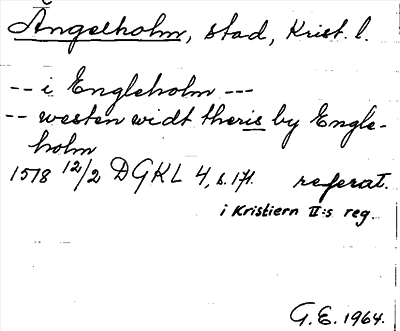 Ängelholm, stad, Krist. l.
-- i Engleholm ---
-- westen widt theris by Engle-
holm
1518 12/2 DGKL 4, s. 171. referat.
i Kristiern II:s reg.
G.E. 1964.